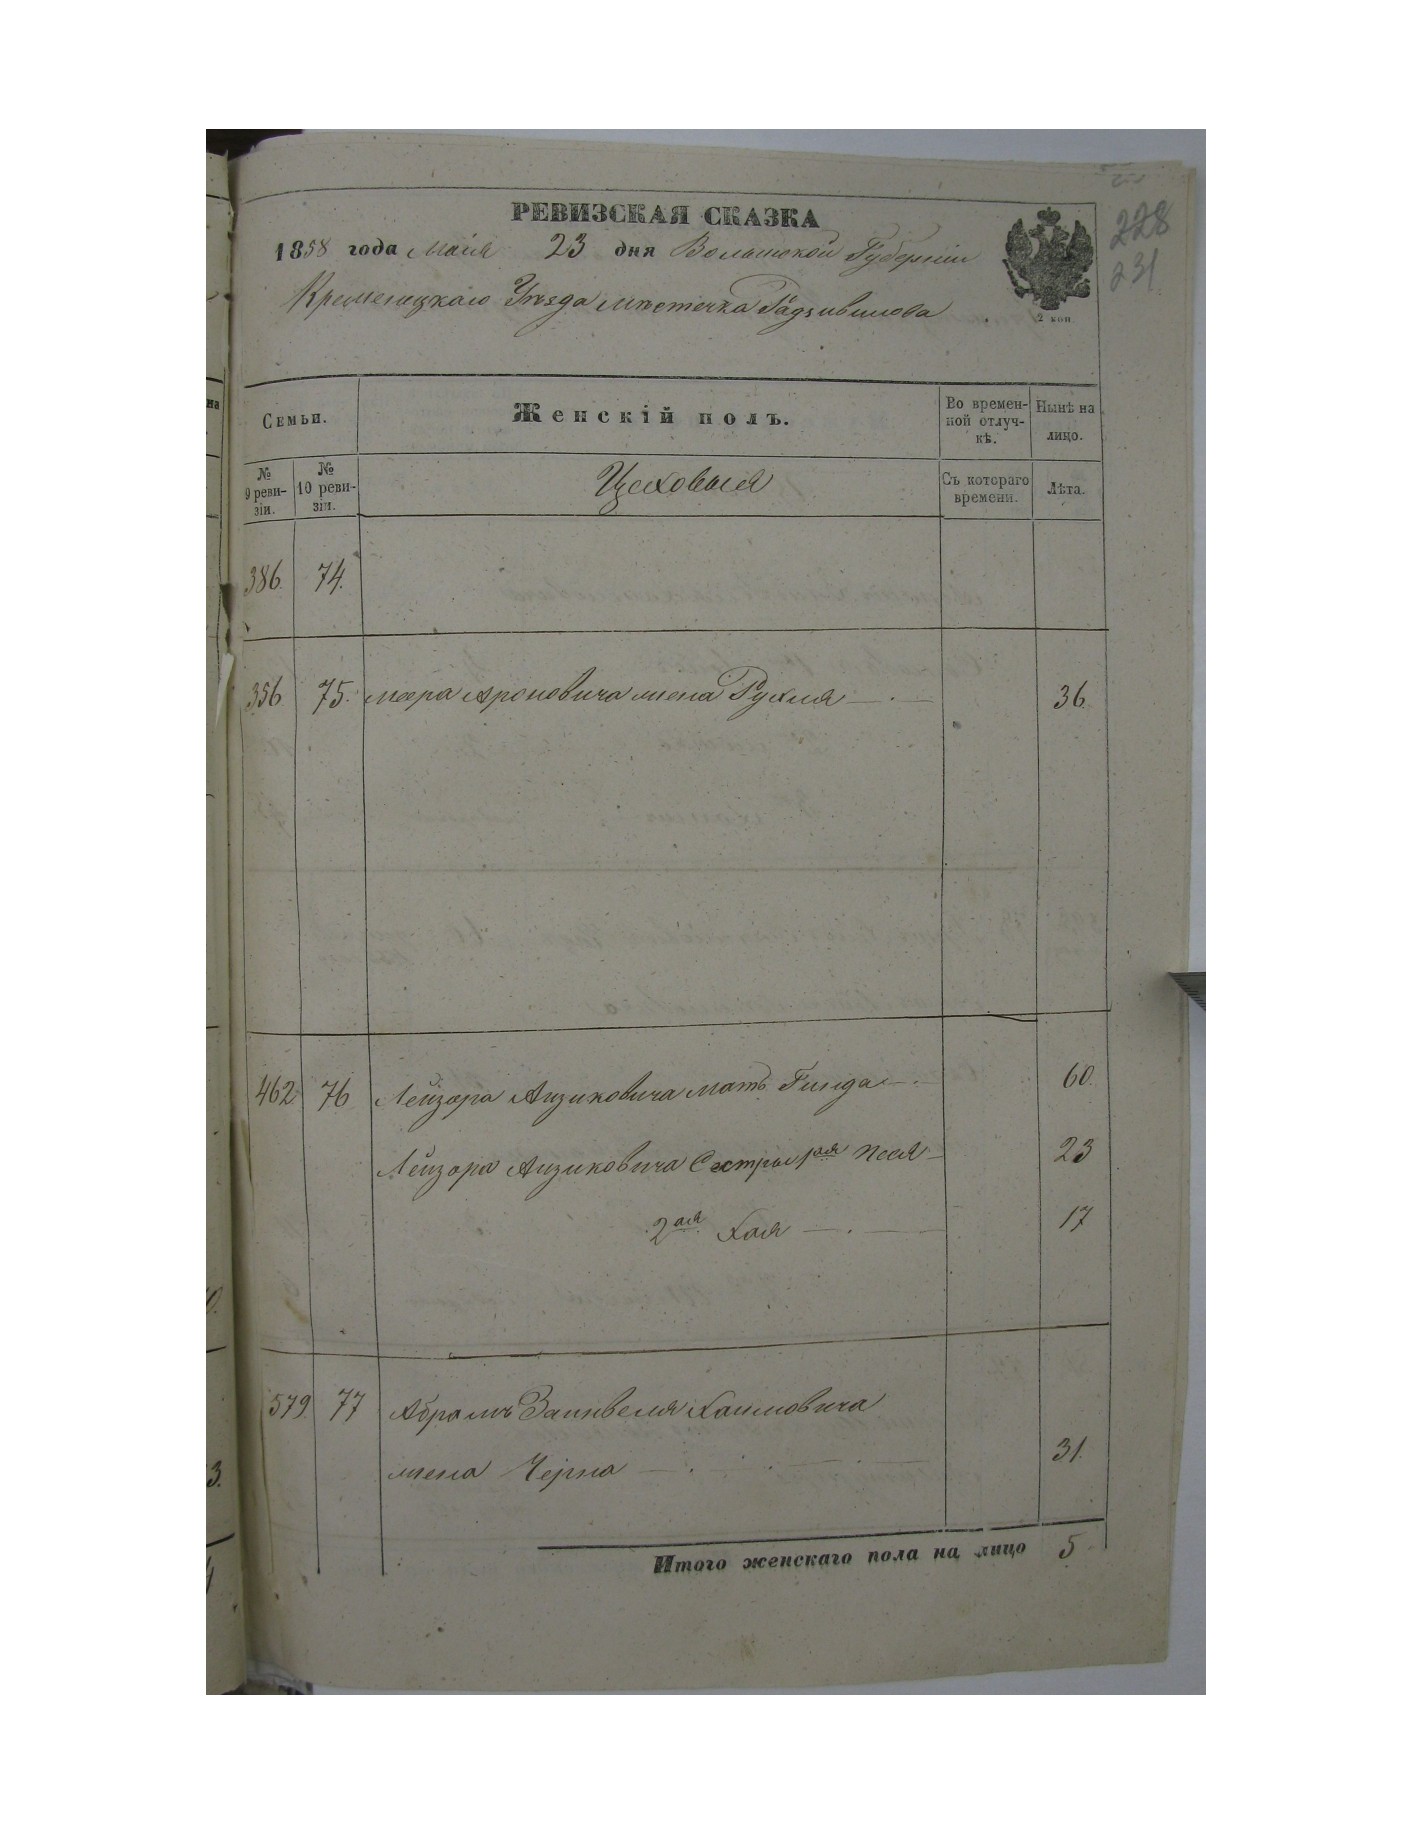 228
231
РЕВИЗСКАЯ СКАЗКА
1858 года Маія 23 дня Волынской Губерніи
Кременецкаго Уѣзда мѣстечка Радзивилова
2 коп.
Семьи. Женскій полъ. Во времен-ной отлуч-кѣ. Нынѣ на лицо.
№ 9 реви-зіи. № 10 реви-зіи. Цеховыя Съ котораго времени. Лѣта.
386. 74.
356 75. Меера Ароновича жена Рухля 36.
462 76 Лейзора Аизиковича мать Гинда 60.
Лейзора Аизиковича Сестры 1ая Песя 23
2ая Хая 17
579. 77 Абрамъ Заинвеля Хаимовича
жена Черна 31.
Итого женскаго пола на лицо 5